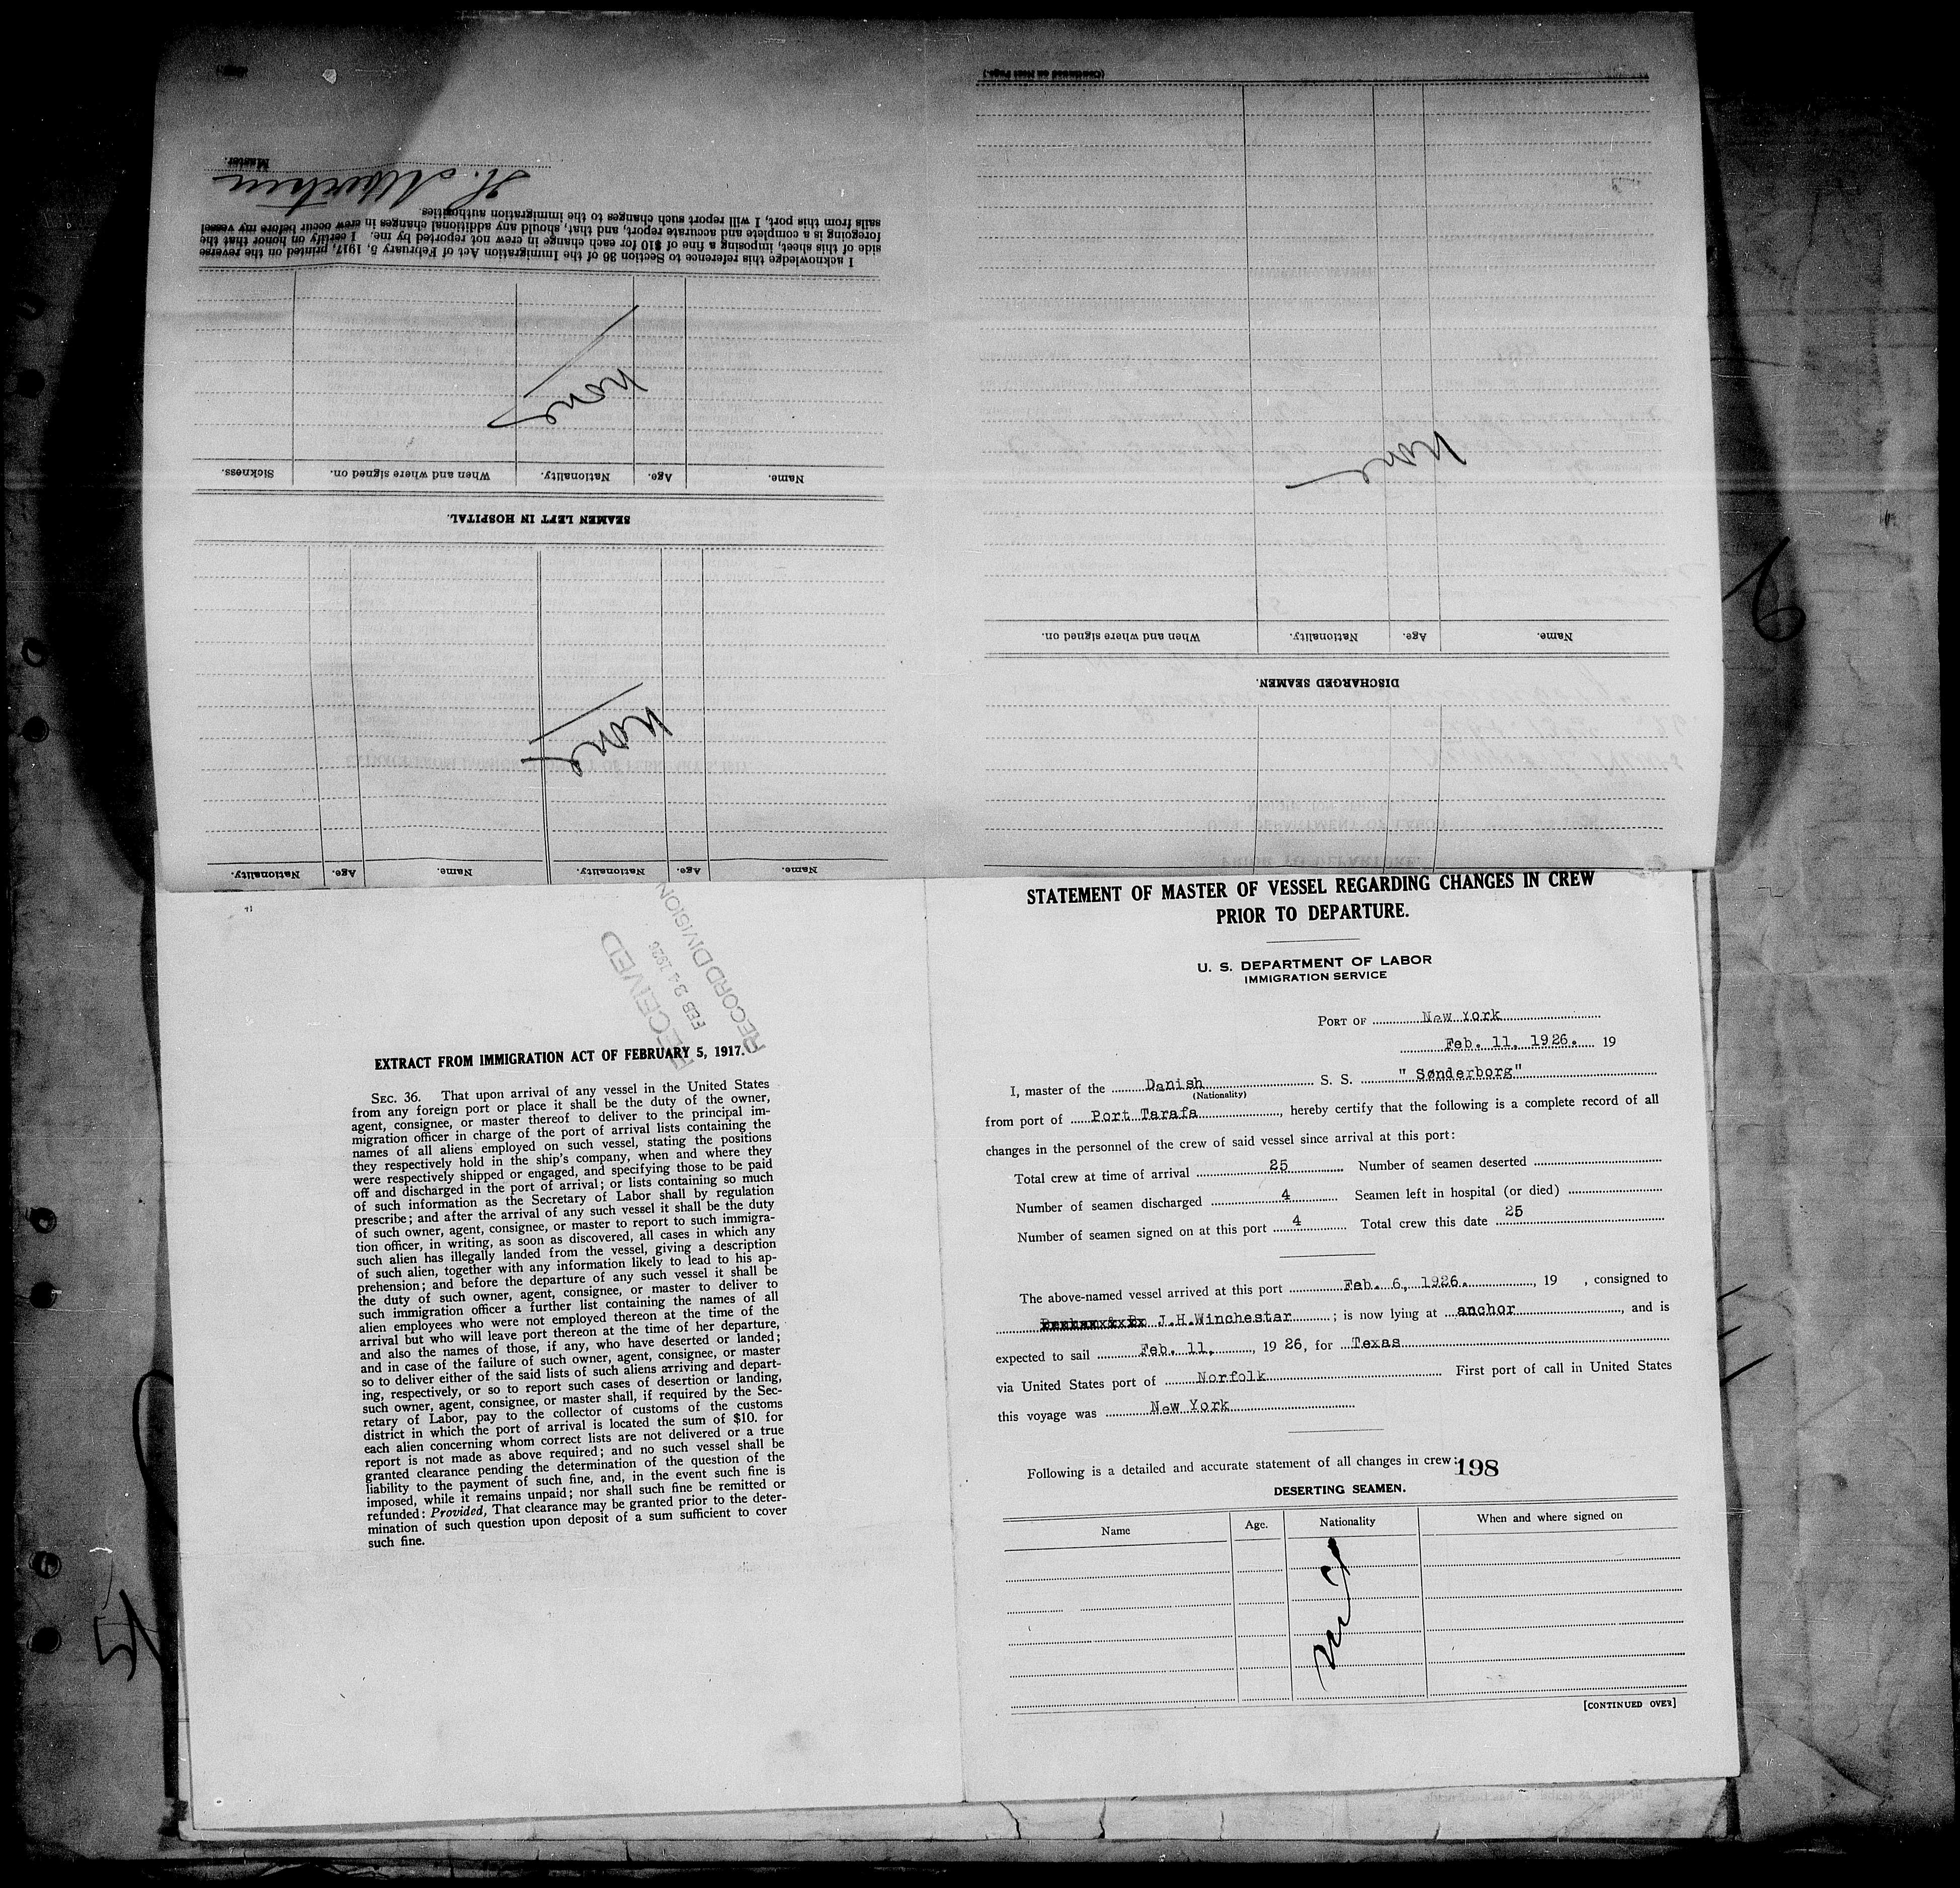 (Continued on Next Page.)
Name. Age. Nationality. Name. Age. Nationality.
none
SEAMEN LEFT IN HOSPITAL.
Name. Age. Nationality. When and where signed on. Sickness.
none
I acknowledge this reference to Section 36 of the Immigration Act of February 5, 1917, printed on the reverse
side of this sheet, imposing a fine of $10 for each change in crew not reported by me. I certify on honor that the
foregoing is a complete and accurate report, and that, should any additional changes in crew occur before my vessel
sails from this port, I will report such changes to the immigration authorities.
Master.
DISCHARGED SEAMEN.
Name. Age. Nationality. When and where signed on.
none
RECEIVED
FEB 24 1926
RECORD DIVISION
EXTRACT FROM IMMIGRATION ACT OF FEBRUARY 5, 1917.
SEC. 36. That upon arrival of any vessel in the United States
from any foreign port or place it shall be the duty of the owner,
agent, consignee, or master thereof to deliver to the principal im-
migration officer in charge of the port of arrival lists containing the
names of all aliens employed on such vessel, stating the positions
they respectively hold in the ship's company, when and where they
were respectively shipped or engaged, and specifying those to be paid
off and discharged in the port of arrival; or lists containing so much
of such information as the Secretary of Labor shall by regulation
prescribe; and after the arrival of any such vessel it shall be the duty
of such owner, agent, consignee, or master to report to such immigra-
tion officer, in writing, as soon as discovered, all cases in which any
such alien has illegally landed from the vessel, giving a description
of such alien, together with any information likely to lead to his ap-
prehension; and before the departure of any such vessel it shall be
the duty of such owner, agent, consignee, or master to deliver to
such immigration officer a further list containing the names of all
alien employees who were not employed thereon at the time of the
arrival but who will leave port thereon at the time of her departure,
and also the names of those, if any, who have deserted or landed;
and in case of the failure of such owner, agent, consignee, or master
so to deliver either of the said lists of such aliens arriving and depart-
ing, respectively, or so to report such cases of desertion or landing,
such owner, agent, consignee, or master shall, if required by the Sec-
retary of Labor, pay to the collector of customs of the customs
district in which the port of arrival is located the sum of $10. for
each alien concerning whom correct lists are not delivered or a true
report is not made as above required; and no such vessel shall be
granted clearance pending the determination of the question of the
liability to the payment of such fine, and, in the event such fine is
imposed, while it remains unpaid; nor shall such fine be remitted or
refunded: Provided, That clearance may be granted prior to the deter-
mination of such question upon deposit of a sum sufficient to cover
such fine.
STATEMENT OF MASTER OF VESSEL REGARDING CHANGES IN CREW
PRIOR TO DEPARTURE.
U. S. DEPARTMENT OF LABOR
IMMIGRATION SERVICE
PORT OF New York
Feb. 11, 1926. 19
I, master of the Danish S. S. " Sønderborg"
(Nationality)
from port of Port Tarafa, hereby certify that the following is a complete record of all
changes in the personnel of the crew of said vessel since arrival at this port:
Total crew at time of arrival 25 Number of seamen deserted
Number of seamen discharged 4 Seamen left in hospital (or died)
Number of seamen signed on at this port 4 Total crew this date 25
The above-named vessel arrived at this port Feb. 6, 1926., 19 , consigned to
J.H.Winchester; is now lying at anchor, and is
expected to sail Feb. 11, 1926, for Texas
via United States port of Norfolk First port of call in United States
this voyage was New York
Following is a detailed and accurate statement of all changes in crew:
198
DESERTING SEAMEN.
Name Age. Nationality When and where signed on
[CONTINUED OVER]